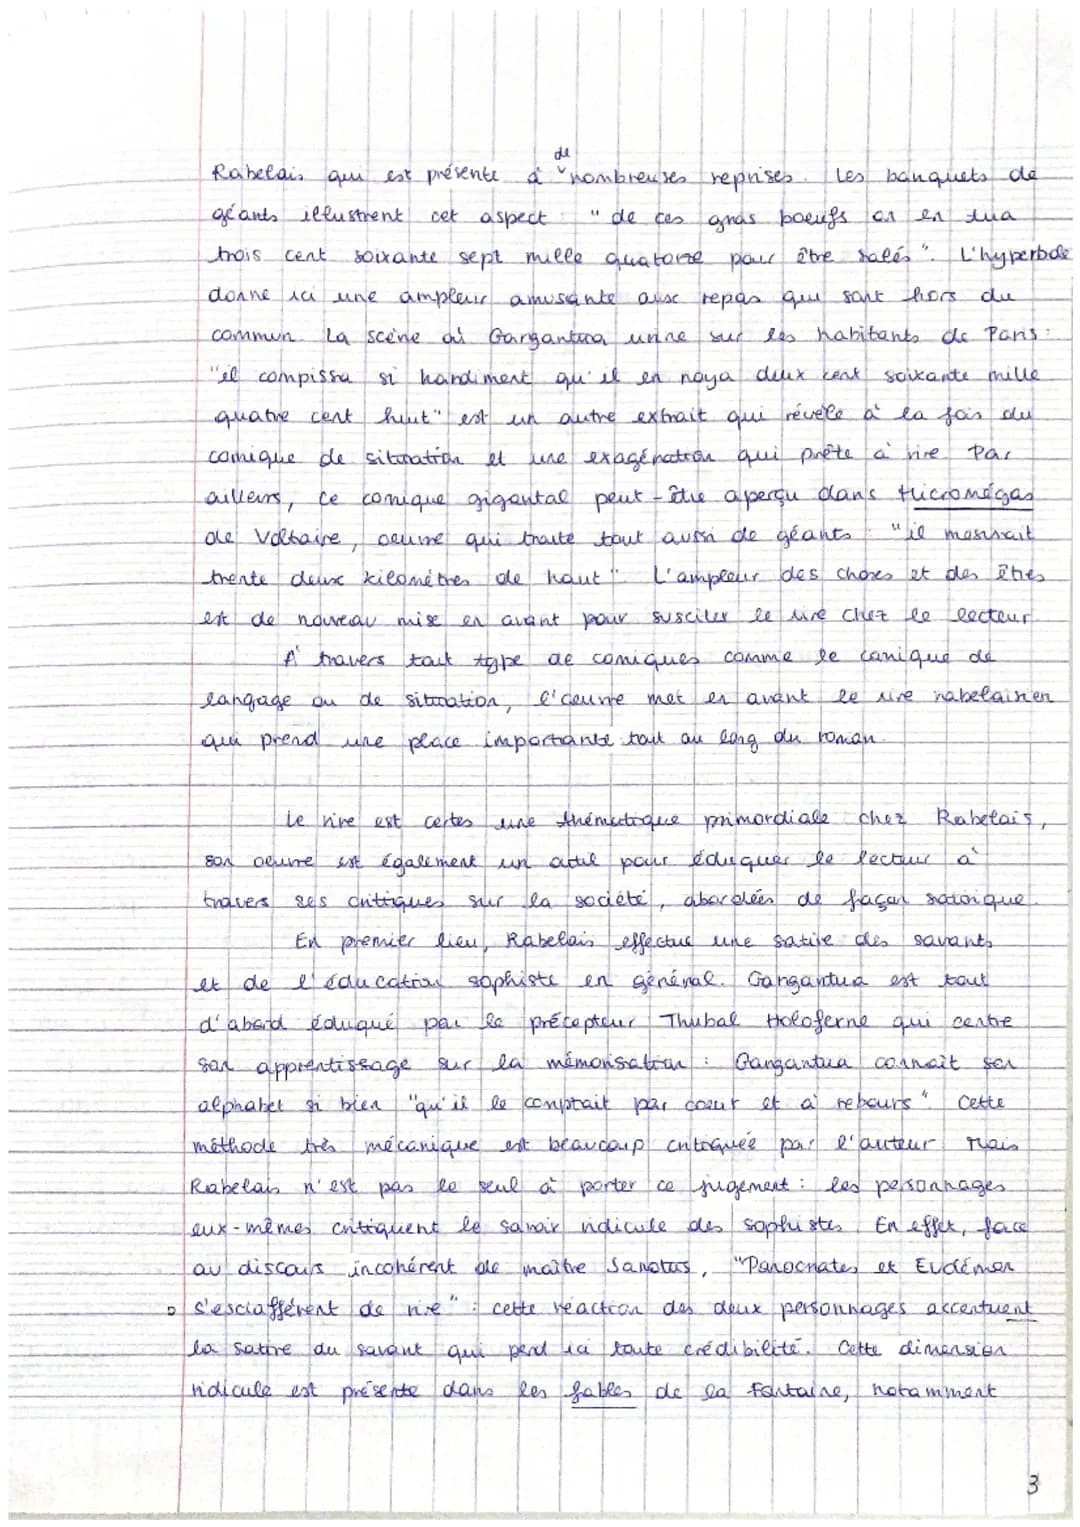 de
Rabelais qui est présente à nombreuses reprises. Les banquets de
géants illustrent cet aspect : " de ces gras boeufs on en tua
trois cent soixante sept mille quatorze pour être salés". L'hyperbole
donne ici une ampleur amusante aux repas qui sont hors du
commun. La scène où Gargantua urine sur les habitants de Paris :
"il compissa si hardiment qu'il en noya deux cent soixante mille
quatre cent huit" est un autre extrait qui révèle à la fois du
comique de situation et une exagération qui prête à rire. Par
ailleurs, ce comique gigantal peut-être aperçu dans Micromégas
de Voltaire, oeuvre qui traite tout aussi de géants : "il mesurait
trente deux kilomètres de haut". L'ampleur des choses et des êtres
est de nouveau mise en avant pour susciter le rire chez le lecteur
À travers tout type de comiques comme le comique de
langage ou de situation, l'oeuvre met en avant le rire rabelaisien
qui prend une place importante tout au long du roman.
Le rire est certes une thématique primordiale chez Rabelais,
son oeuvre est également un outil pour éduquer le lecteur à
travers ses critiques sur la société, abordées de façon satirique.
En premier lieu, Rabelais effectue une satire des savants
et de l'éducation sophiste en général. Gargantua est tout
d'abord éduqué par le précepteur Thubal Holoferne qui centre
son apprentissage sur la mémorisation : Gargantua connait son
alphabet si bien "qu'il le comptait par coeur et à rebours". Cette
méthode très mécanique est beaucoup critiquée par l'auteur. Mais
Rabelais n'est pas le seul à porter ce jugement : les personnages
eux-mêmes critiquent le savoir ridicule des sophistes. En effet, face
au discours incohérent de maître Janotus, "Ponocrates et Eudémon
s'esclaffèrent de rire" : cette réaction des deux personnages accentuent
la satire du savant qui perd ici toute crédibilité. Cette dimension
ridicule est présente dans les fables de la Fontaine, notamment
3